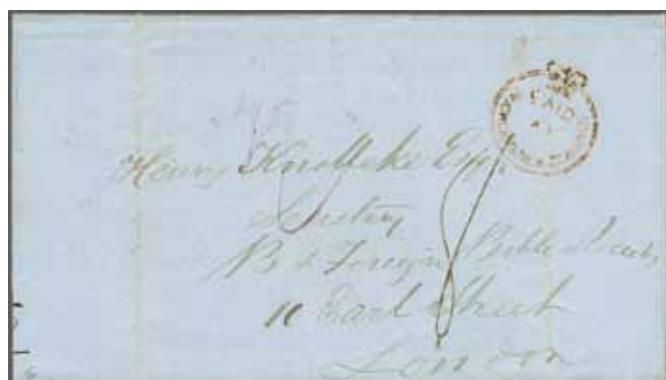 PAID
Henry Knolleke Esq
Secretary
B & Foreign Bible
10 Earl Street
London
8